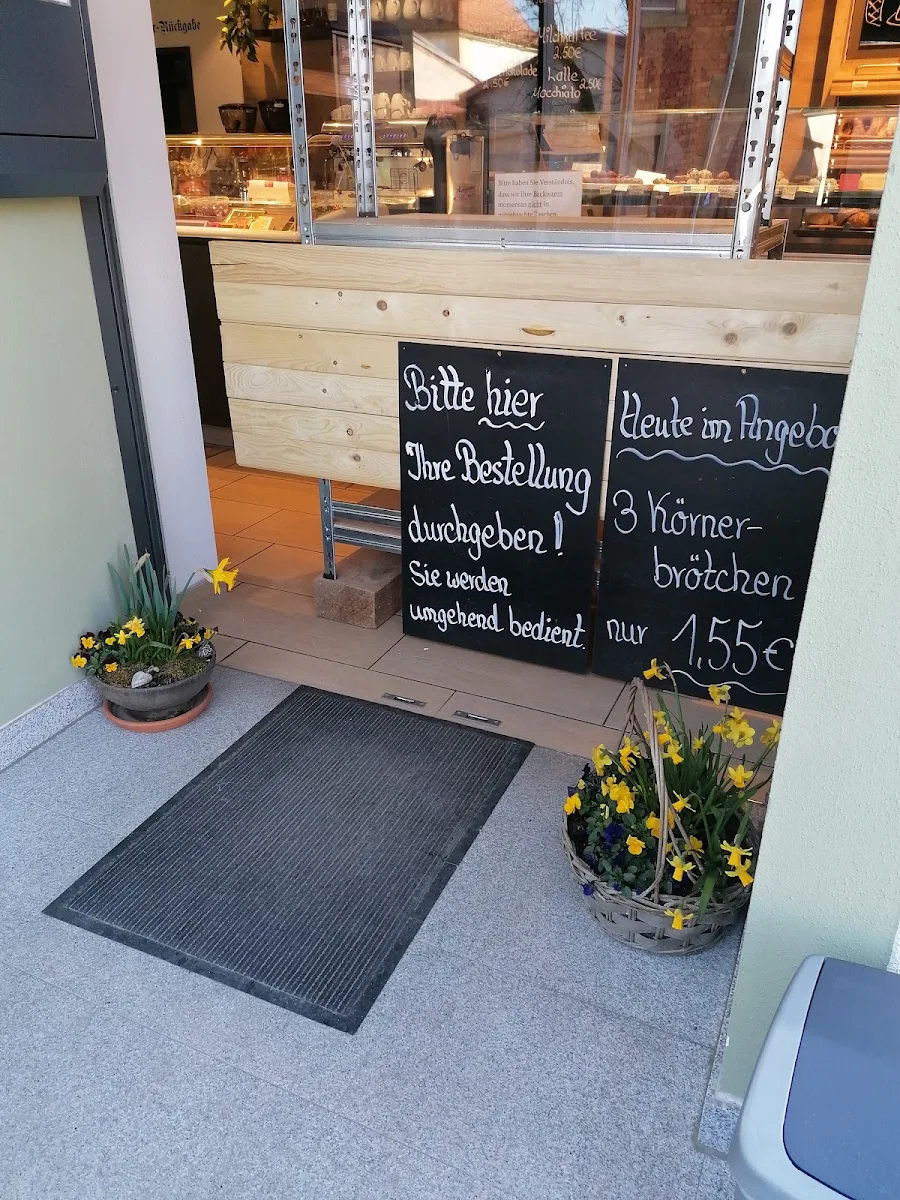 r-Rückgabe
Milchkaffee
2.50€
Schokolade
2.50€
Latte
Macchiato
2.50€
Bitte haben Sie Verständnis,
dass wir Ihre Backwaren
momentan nicht in
mitgebrachte Taschen
Bitte hier
Ihre Bestellung
durchgeben!
Sie werden
umgehend bedient.
Heute im Angebo
3 Körner-
brötchen
nur 1,55€